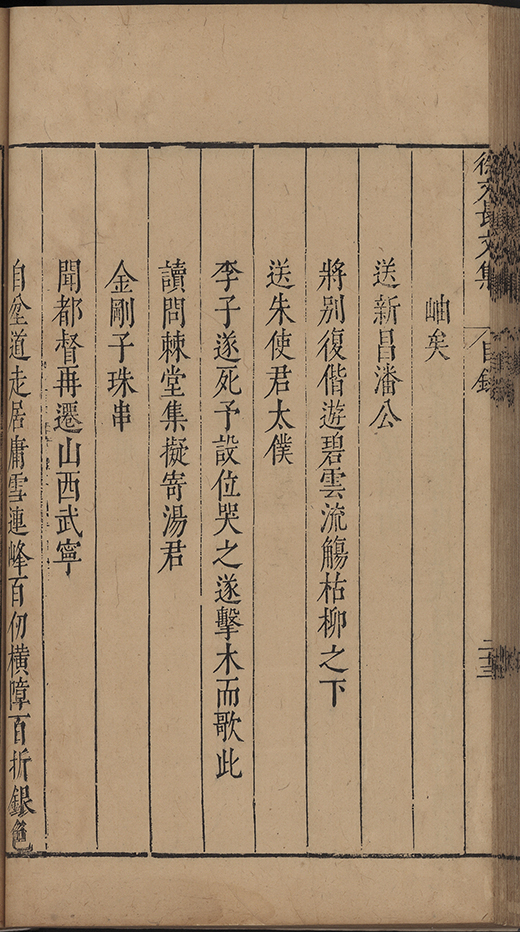 徐文長文集 目錄 二十三
岫矣
送新昌潘公
將别復偕遊碧雲流觴枯柳之下
送朱使君太僕
李子遂死予設位哭之遂擊木而歌此
讀問棘堂集擬寄湯君
金剛子珠串
聞都督再遷山西武寧
自坌道走居庸雪連峰百仞橫障百折銀色